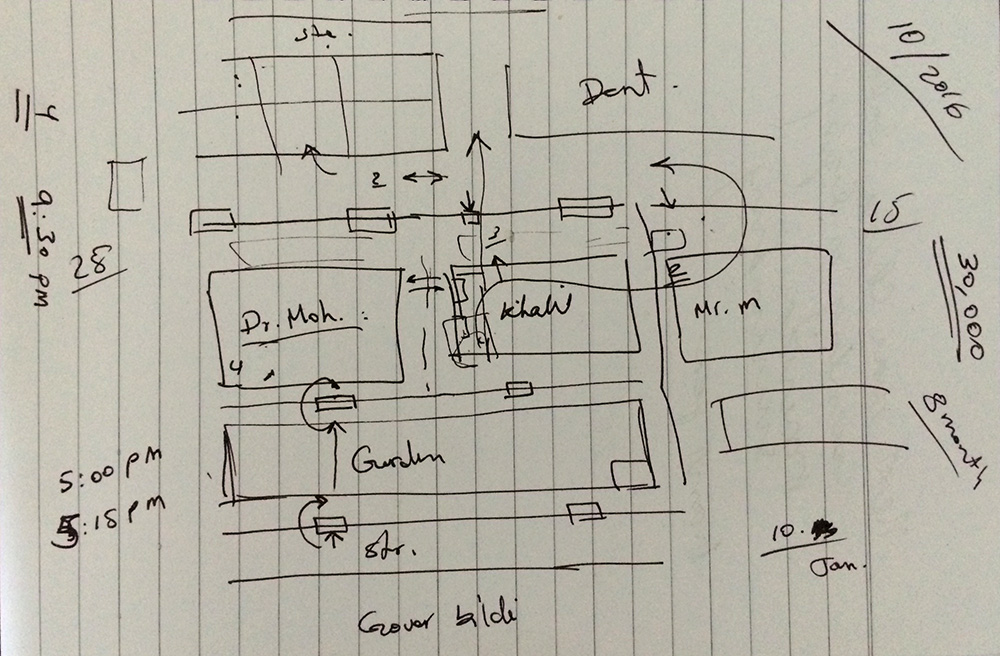 str.
Dent.
10/2016
4
9:30 pm
28
2
3
15
30,000
Dr. Moh. :
4
Khalil
Mr. m
8 month
Gurden
5:00 PM
5:15 PM
str.
10.
Jan.
Gover bildi